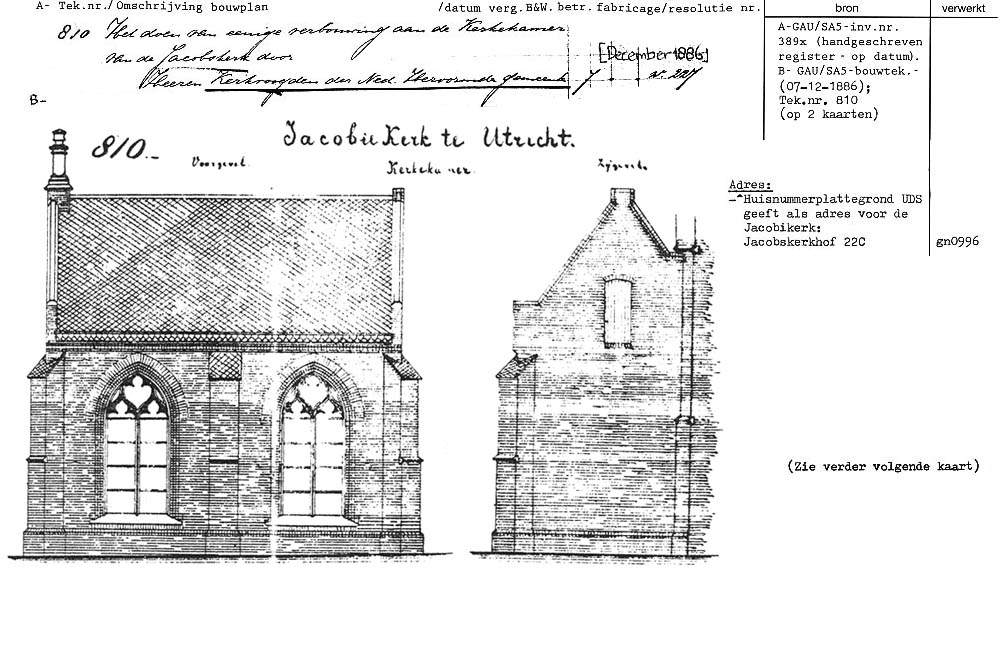 A- Tek.nr./Omschrijving bouwplan /datum verg.B&W.betr.fabricage/resolutie nr.
bron
verwerkt
810 Het doen van eenige verbouwing aan de Kerkekamer
van de Jacobskerk door [December 1886]
Heeren Kerkvoogden der Ned. Hervormde gemeente 7 nr. 227
A-GAU/SA5-inv.nr.
389x (handgeschreven
register - op datum).
B- GAU/SA5-bouwtek.-
(07-12-1886);
Tek.nr. 810
(op 2 kaarten)
B-
810.-
Jacobie Kerk te Utrecht.
Voorgevel.
Kerkekamer.
Zijgevel.
Adres:
-^Huisnummerplattegrond UDS
geeft als adres voor de
Jacobikerk:
Jacobskerkhof 22C
gn0996
(Zie verder volgende kaart)